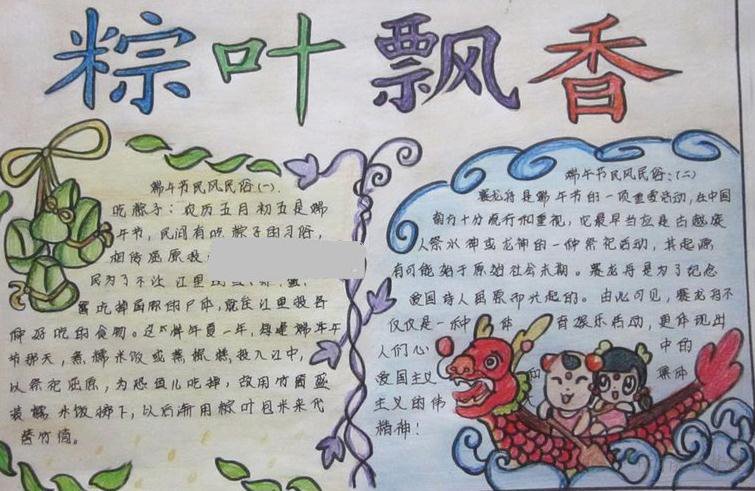 粽叶飘香
端午节民风民俗(一)
吃粽子:农历五月初五是端
午节,民间有吃粽子的习俗,
相传屈原投
民为了不让江里
吃掉屈原的尸体,就往江里投各
种好吃的食物。这 年复一年,每逢端午
节那天,煮糯米饭或蒸 糕投入江中,
以祭祀屈原,为恐鱼儿吃掉,故用竹筒盛
装糯米饭掷下,以后渐用粽叶包米来代
替竹筒。
端午节民风民俗:(二)
赛龙舟是端午节的一项重要活动,在中国
南方十分流行和重视,它最早当应是古越族
人祭水神或龙神的一种祭祀活动,其起源
有可能始于原始社会末期。赛龙舟是为了纪念
爱国诗人屈原而兴起的。由此可见,赛龙舟不
仅仅是一种 体 育娱乐活动,更体现出
人们心 中的
爱国主义 和 集体
主义的伟
精神!